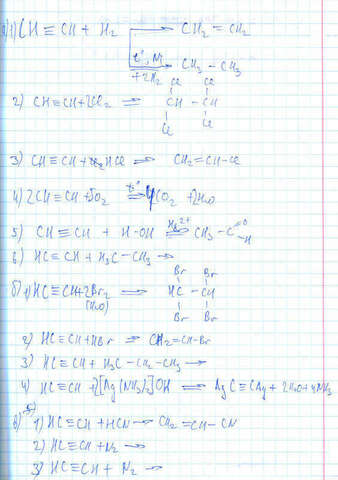 а) 1) CH ≡ CH + H2 → CH2 = CH2
t°, Ni
+2H2 → CH3 – CH3
Cl Cl
2) CH ≡ CH + 2Cl2 → CH – CH
Cl Cl
3) CH ≡ CH + HCl → CH2 = CH – Cl
4) 2CH ≡ CH + 5O2 → t° 4CO2 + 2H2O
5) CH ≡ CH + H-OH Hg2+ → CH3 – C =O –H
6) HC ≡ CH + H3C – CH3 →
Br Br
б) 1) HC ≡ CH + 2Br2 → HC – CH
(H2O) Br Br
2) HC ≡ CH + HBr → CH2 = CH – Br
3) HC ≡ CH + H3C – CH2 – CH3 →
4) HC ≡ CH + 2[Ag(NH3)2]OH → AgC ≡ CAg + 2H2O + 4NH3
в) 1) HC ≡ CH + HCN → CH2 = CH – CN
2) HC ≡ CH + N2 →
3) HC ≡ CH + N2 →